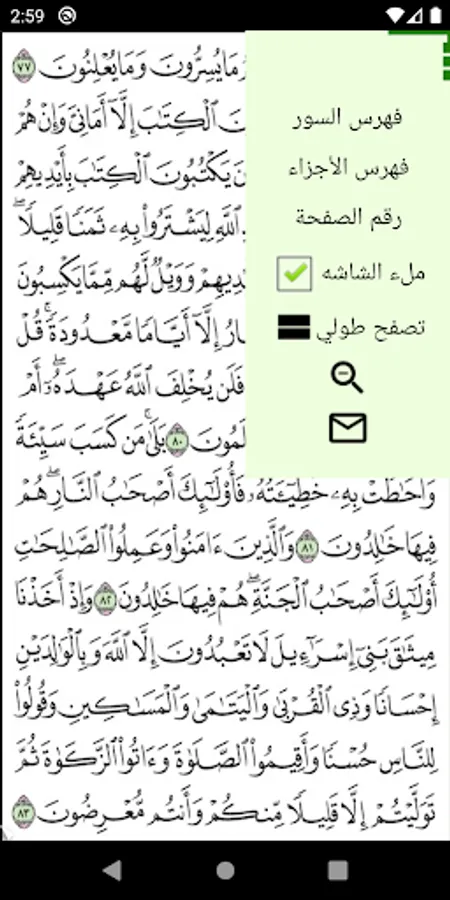 2:59
مَا يُسِرُّونَ وَمَا يُعْلِنُونَ ٧٧
ٱلْكِتَٰبَ إِلَّآ أَمَانِىَّ وَإِنْ هُمْ
يَكْتُبُونَ ٱلْكِتَٰبَ بِأَيْدِيهِمْ
ٱللَّهِ لِيَشْتَرُوا۟ بِهِۦ ثَمَنًا قَلِيلًاۖ
وَوَيْلٌ لَّهُم مِّمَّا يَكْسِبُونَ
إِلَّآ أَيَّامًا مَّعْدُودَةًۚ قُلْ
فَلَن يُخْلِفَ ٱللَّهُ عَهْدَهُۥٓۖ أَمْ
٨٠ بَلَىٰۚ مَن كَسَبَ سَيِّئَةً
وَأَحَٰطَتْ بِهِۦ خَطِيٓـَٔتُهُۥ فَأُو۟لَٰٓئِكَ أَصْحَٰبُ ٱلنَّارِۖ هُمْ
فِيهَا خَٰلِدُونَ ٨١ وَٱلَّذِينَ ءَامَنُوا۟ وَعَمِلُوا۟ ٱلصَّٰلِحَٰتِ
أُو۟لَٰٓئِكَ أَصْحَٰبُ ٱلْجَنَّةِۖ هُمْ فِيهَا خَٰلِدُونَ ٨٢ وَإِذْ أَخَذْنَا
مِيثَٰقَ بَنِىٓ إِسْرَٰٓءِيلَ لَا تَعْبُدُونَ إِلَّا ٱللَّهَ وَبِٱلْوَٰلِدَيْنِ
إِحْسَانًا وَذِى ٱلْقُرْبَىٰ وَٱلْيَتَٰمَىٰ وَٱلْمَسَٰكِينِ وَقُولُوا۟
لِلنَّاسِ حُسْنًا وَأَقِيمُوا۟ ٱلصَّلَوٰةَ وَءَاتُوا۟ ٱلزَّكَوٰةَ ثُمَّ
تَوَلَّيْتُمْ إِلَّا قَلِيلًا مِّنكُمْ وَأَنتُم مُّعْرِضُونَ ٨٣
فهرس السور
فهرس الأجزاء
رقم الصفحة
ملء الشاشه
تصفح طولي